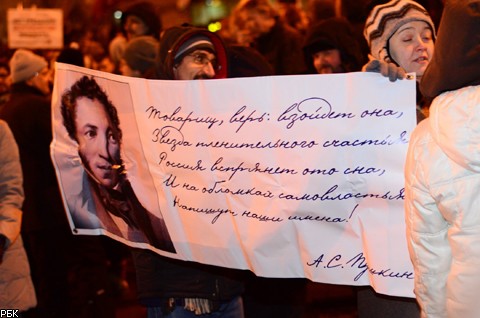 Товарищ, верь: взойдет она,
Звезда пленительного счастья
Россия вспрянет ото сна,
И на обломкай самовластья
Напишут наши имена!
А.С. Пушкин
РБК